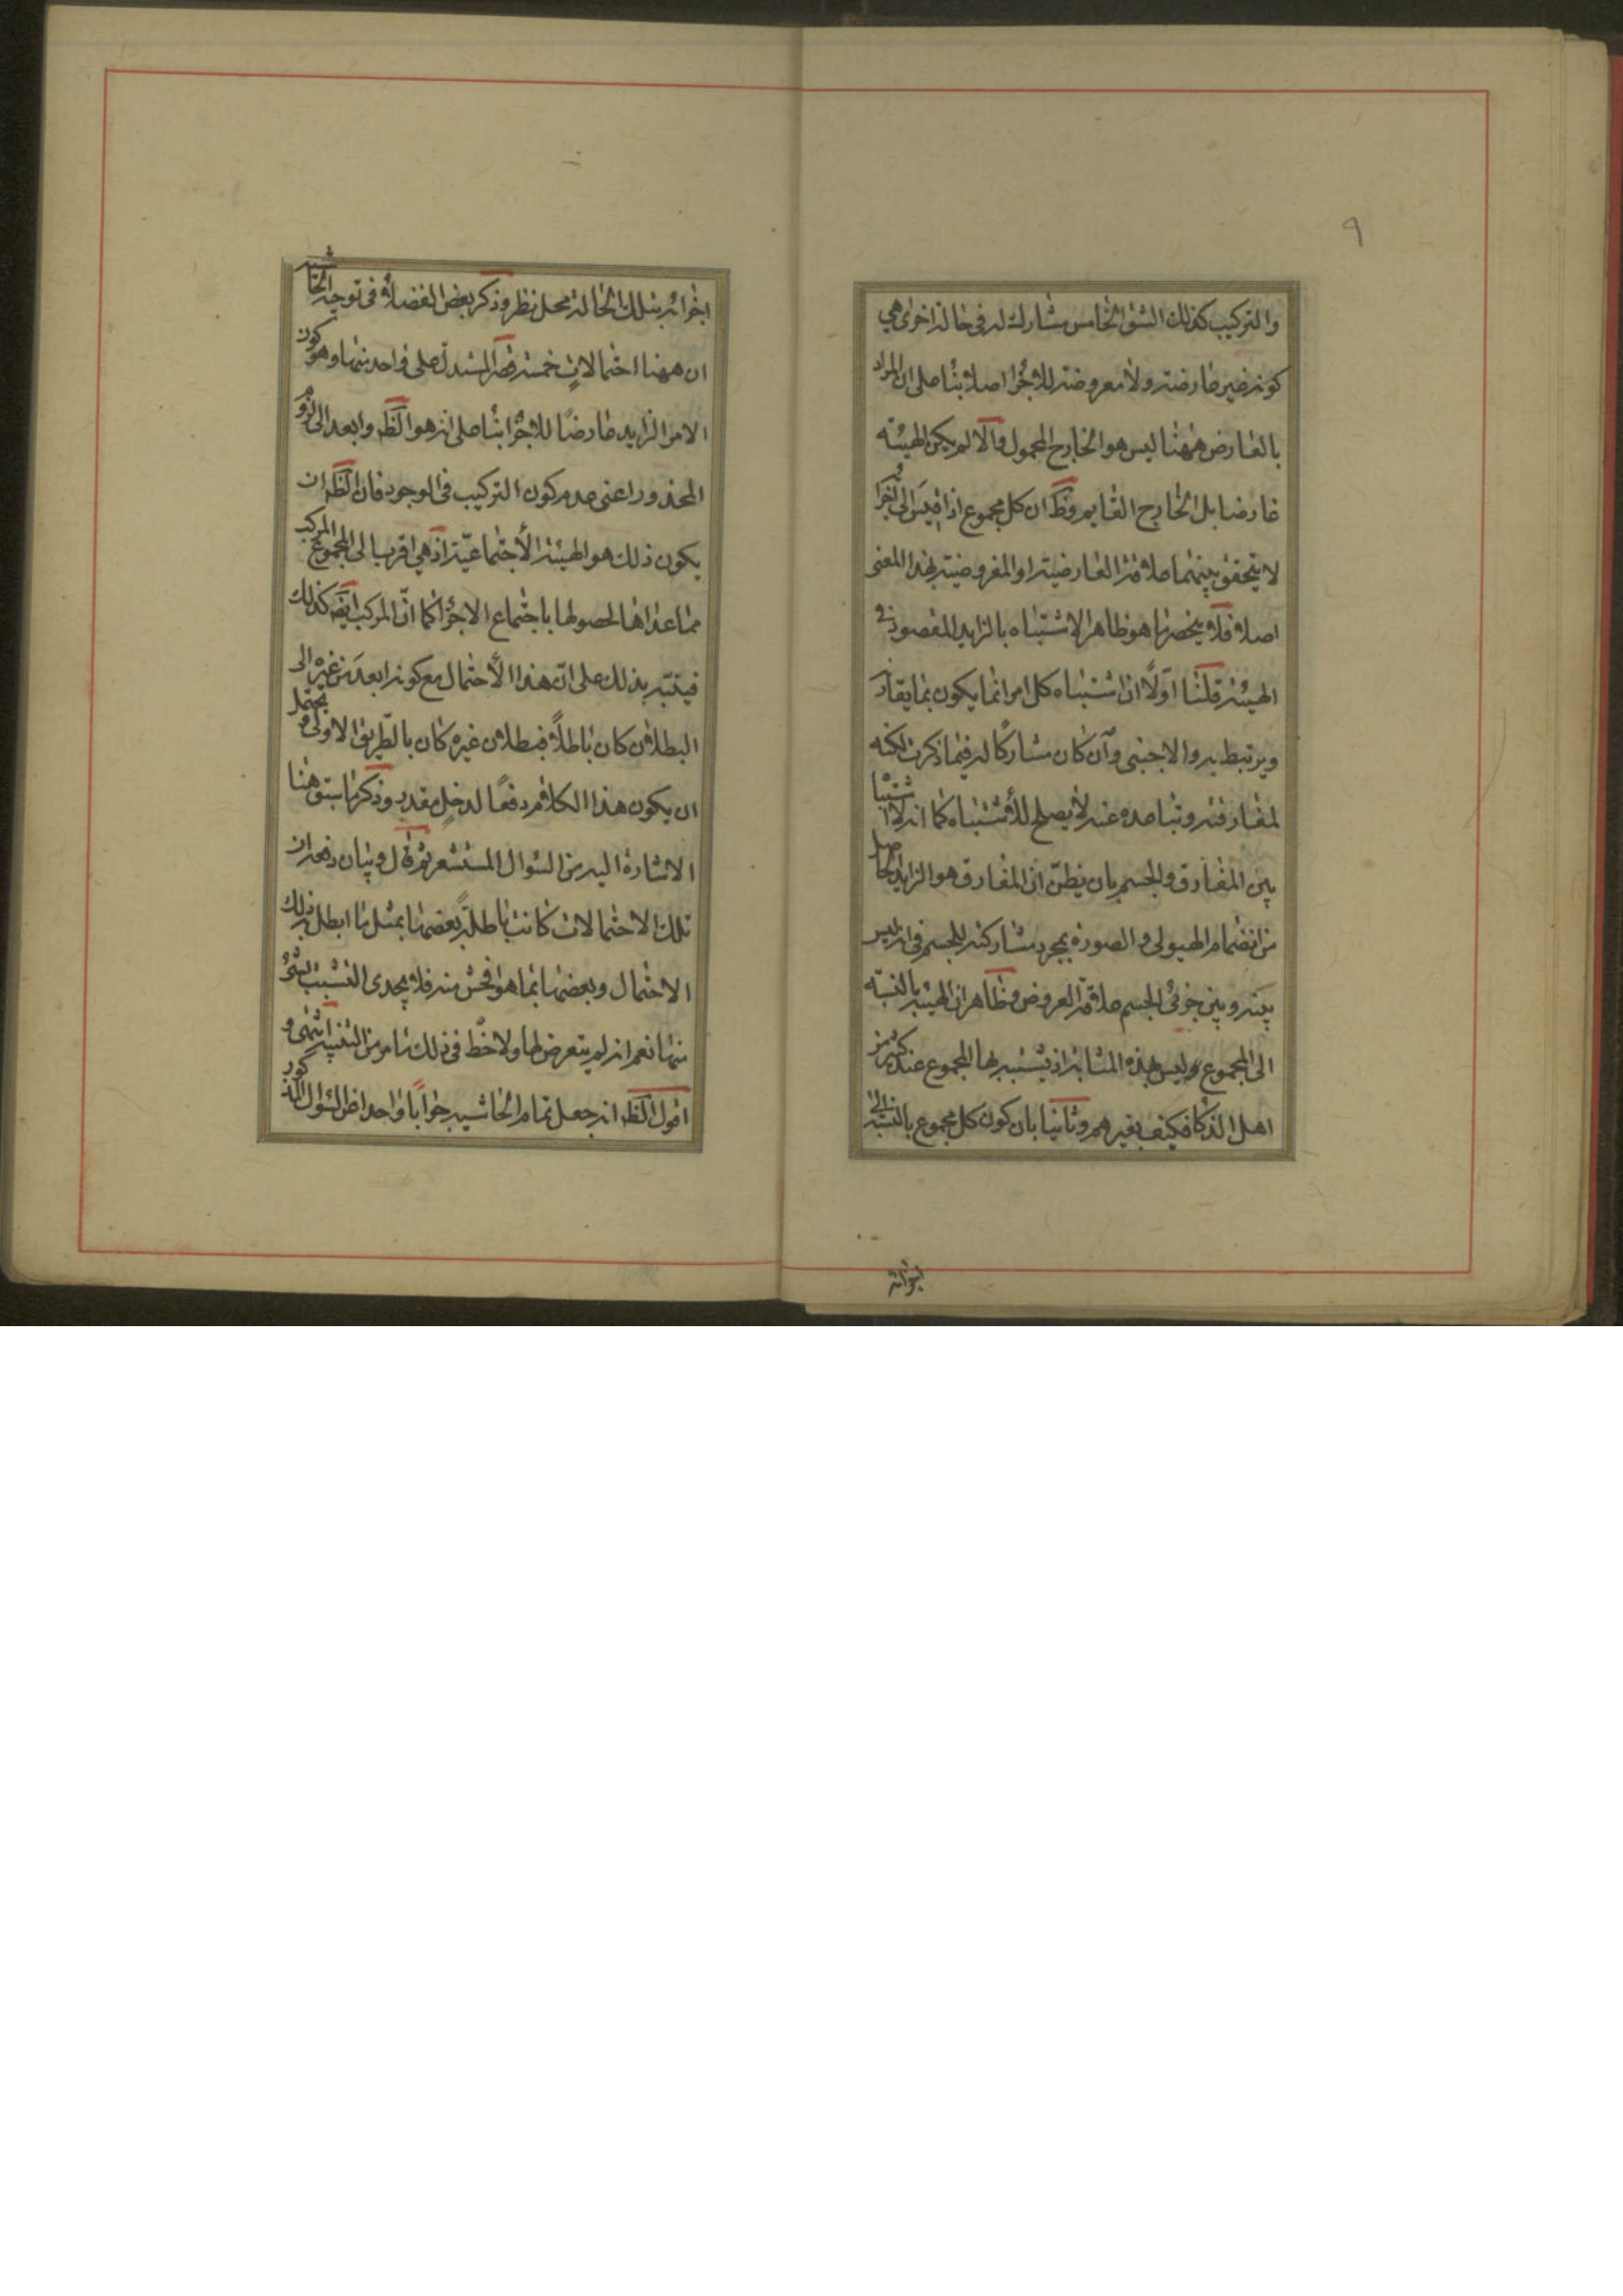 ٩
والتركيب كذلك الشق الخامس مشارك له في حالة اخرى هي
كونه غير عارضة ولا معروضة للاجزا اصلا بنا على ان المراد
بالعارض ههنا ليس هو الخارج المحمول والا لم يكن الهيئة
عارضا بل الخارج القايم وظ ان كل مجموع اذا قيس الى اجزائه
لا يتحقق بينهما علاقة العارضية او المعروضية بهذا المعنى
اصلا فلا ينحصر ما هو ظاهر الاشتباه بالزايد المقصود في
الهيئة قلنا اولا ان اشتباه كل امر انما يكون بما يقارنه
ويرتبط به والاجنبي وان كان مشاركا له فيما ذكرت لكنه
لمفارقته وتباعده عنه لا يصلح للاشتباه كما انه لا اشتباه
بين المفارق والجسم بان يظن ان المفارق هو الزايد الحاصل
من انضمام الهيولى والصورة بمجرد مشاركته للجسم في انه ليس
بينه وبين جزئي الجسم علاقة العروض وظاهر ان الهيئة بالنسبة
الى المجموع وليس بهذه المثابة اذ يشتبه بها المجموع عند كثير من
اهل الذكا فكيف بغيرهم وثانيا بان كون كل مجموع بالنسبة الى
اجزائه
اجزائه بتلك الحالة محل نظر وذكر بعض الفضلاء في توجيه الحاشية
ان ههنا احتمالات خمسة قصر المستدل على واحد منها وهو كون
الامر الزايد عارضا للاجزا بنا على انه هو الظ وابعد الى لزوم
المحذور اعني عدم كون التركيب في الوجود فان الظ ان
يكون ذلك هو الهيئة الاجتماعية اذ هي اقرب الى المجموع المركب
مما عداها لحصولها باجتماع الاجزا كما ان المركب ايض كذلك
فيتنبه بذلك على ان هذا الاحتمال مع كونه ابعد من غيره الى
البطلان كان باطلا فبطلان غيره كان بالطريق الاولى ويحتمل
ان يكون هذا الكلام دفعا لدخل مقدر وذكر ما سبق هنا
الاشارة اليه من السؤال المستشعر ثم قال وبيان دفعه ان
تلك الاحتمالات كانت باطلة بعضها بمثل ما ابطل به ذلك
الاحتمال وبعضها بما هو افحش منه فلا يجدى التشبث بشئ
منها نعم انه لم يتعرض لها ولا حظ في ذلك ما مر من التنبيه انتهى و
اقول الظ انه جعل تمام الحاشية جوابا واحدا عن السؤال المذكور